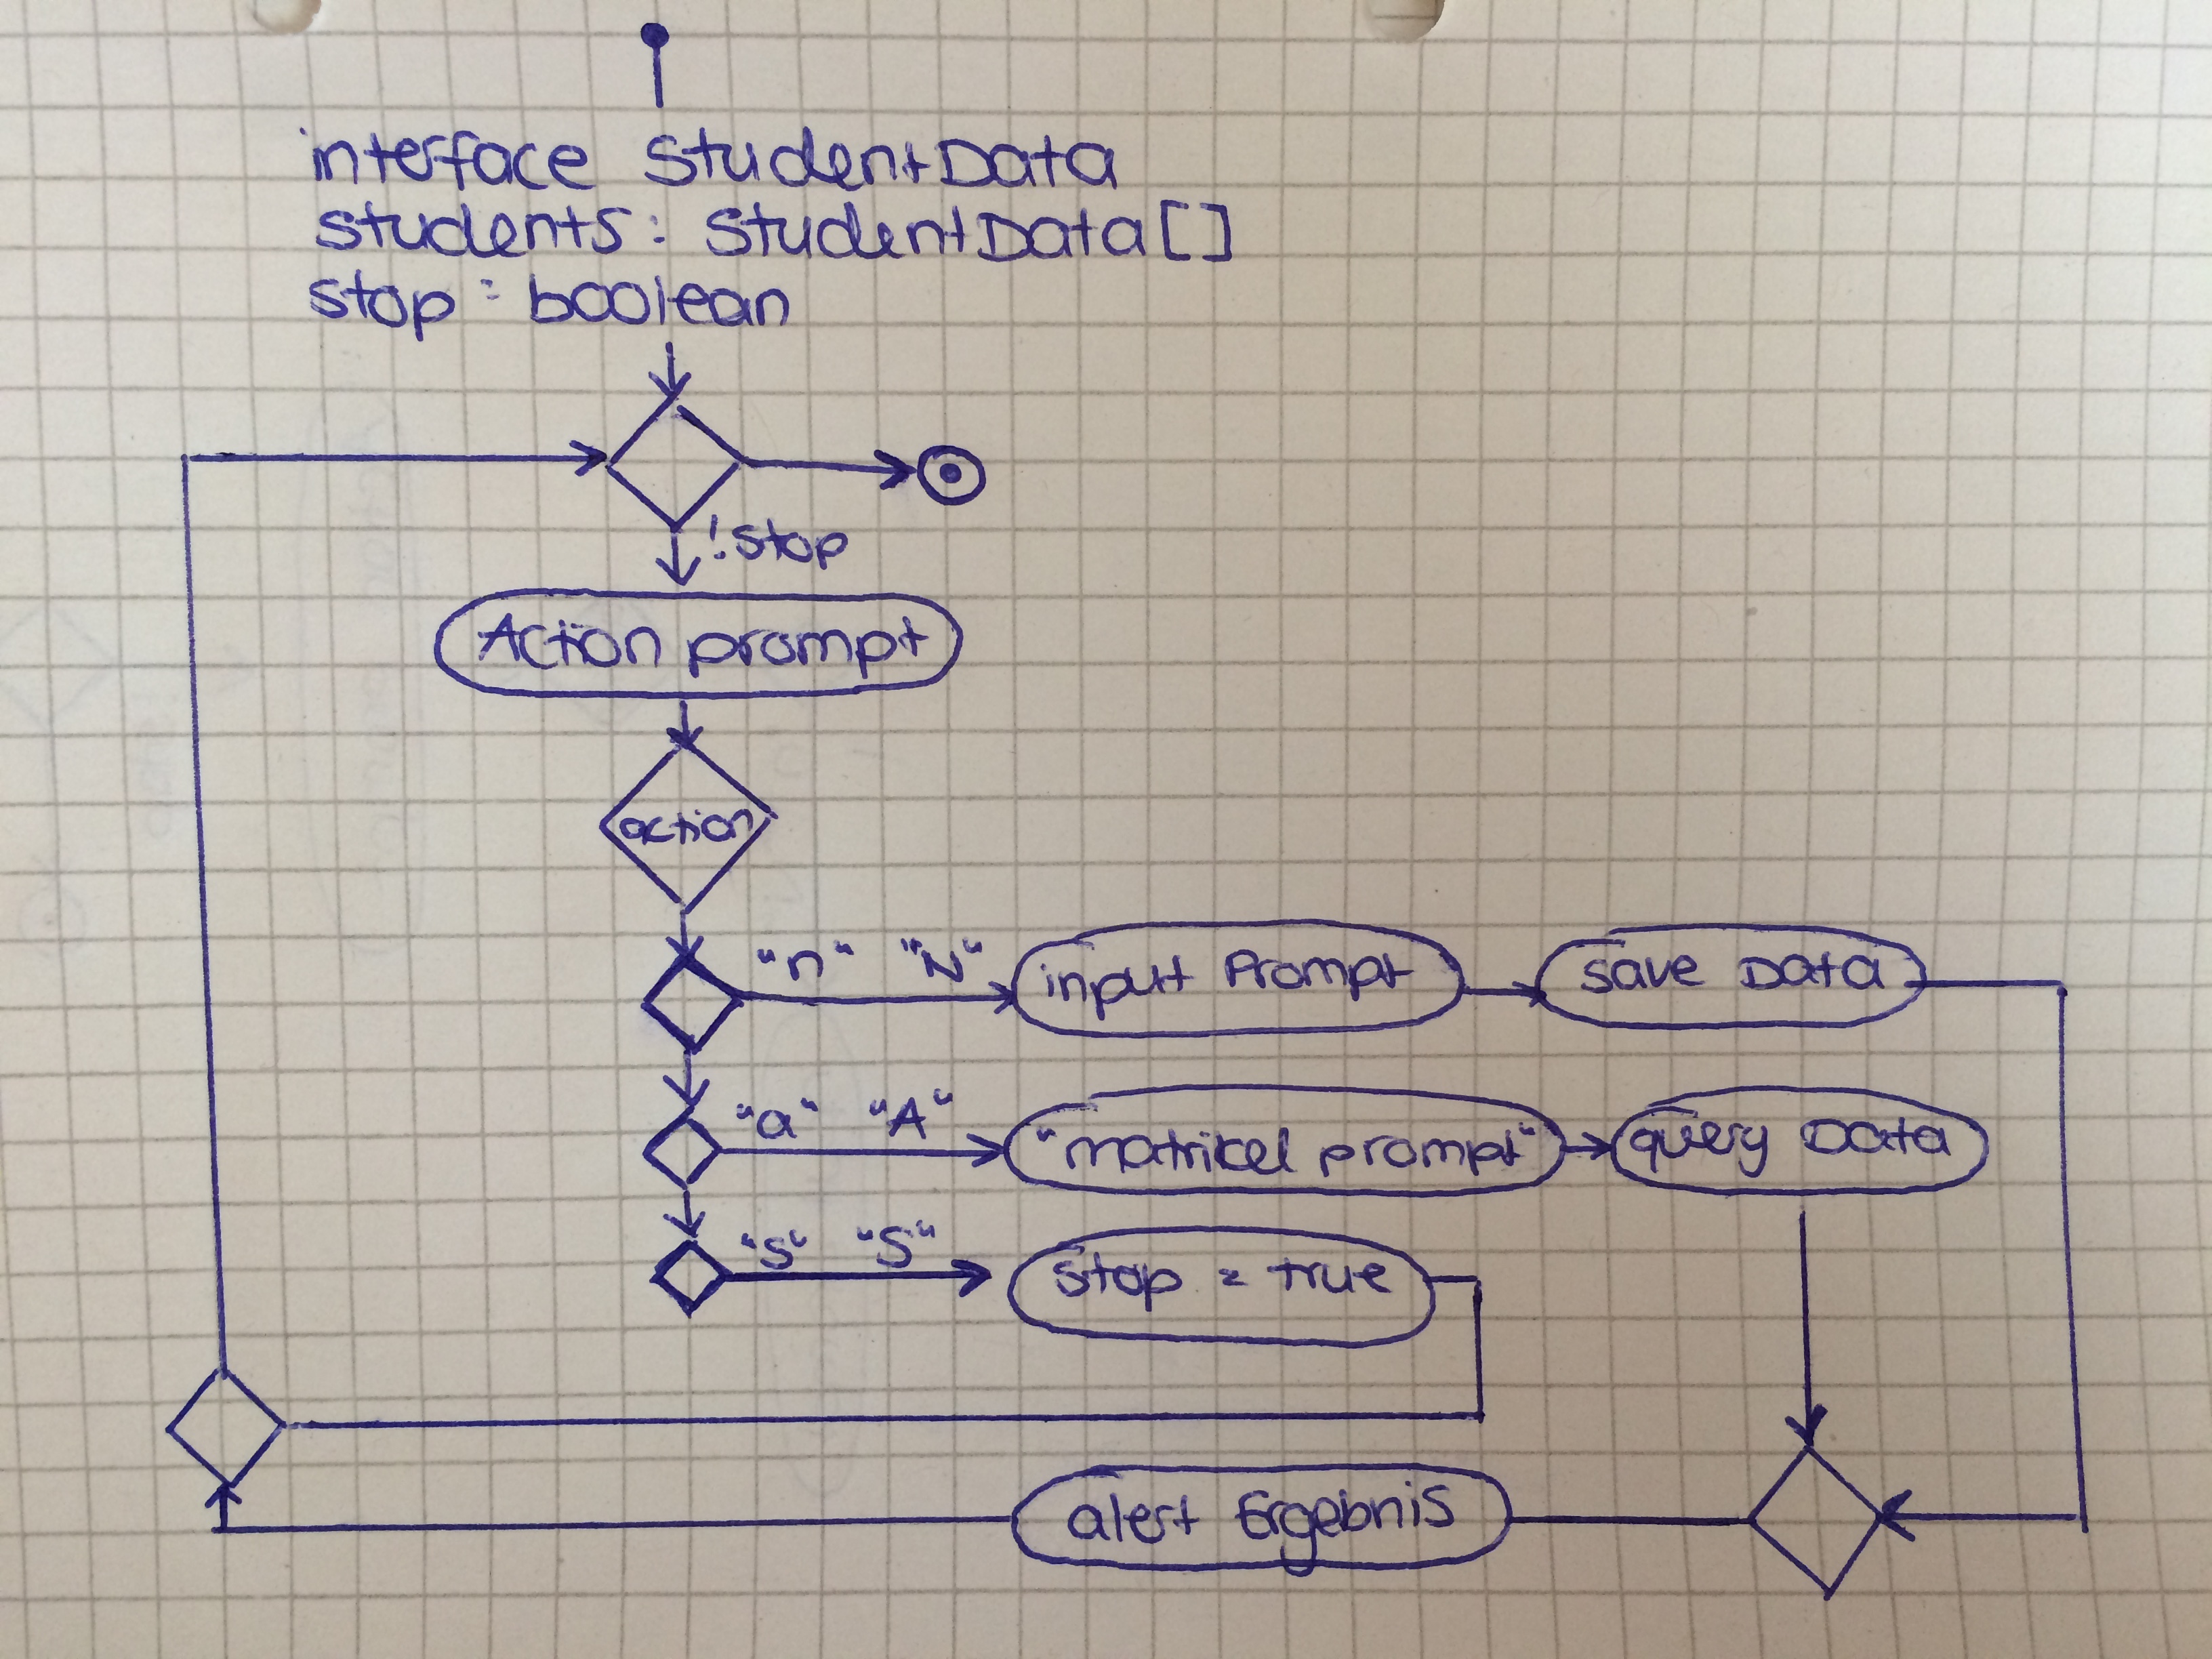 interface StudentData
students: StudentData[]
stop : boolean
!stop
Action prompt
action
"n" "N" input Prompt save Data
"a" "A" "matrikel prompt" query Data
"s" "S" stop = true
alert Ergebnis